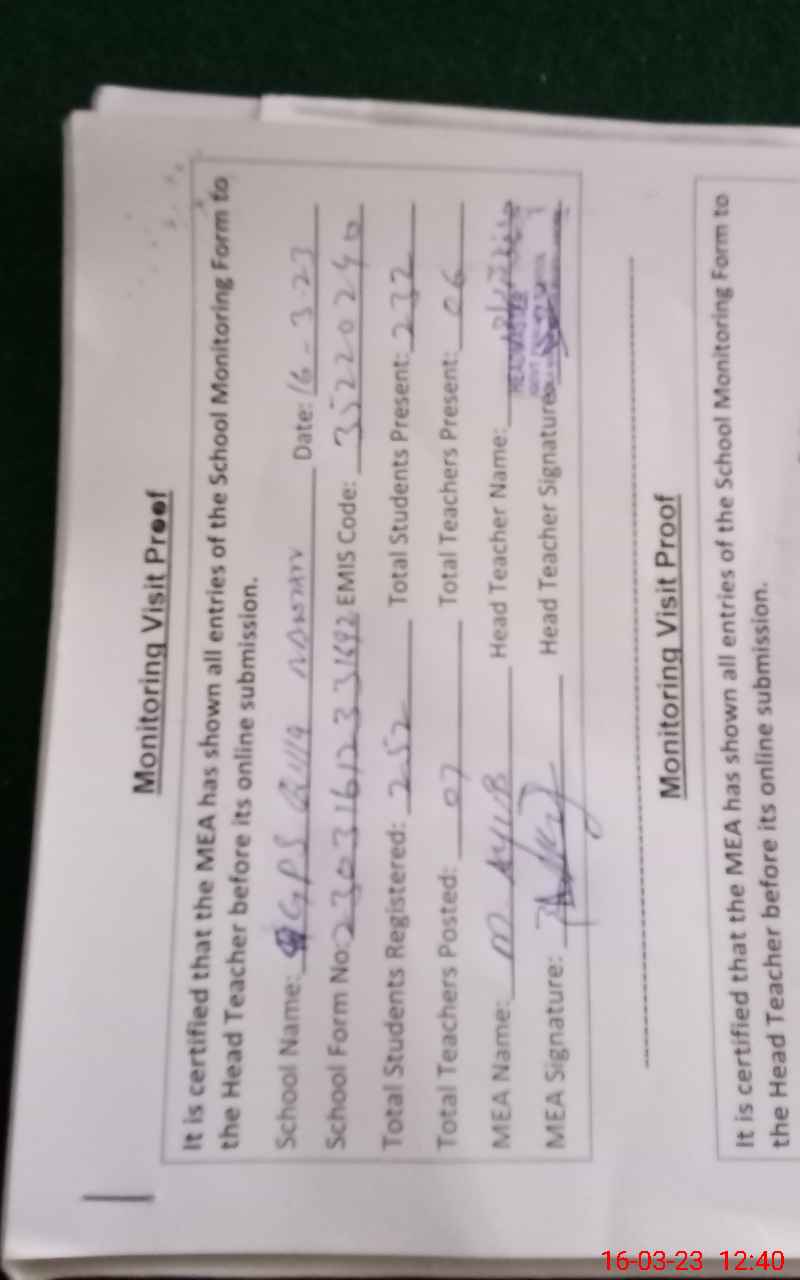 Monitoring Visit Proof
It is certified that the MEA has shown all entries of the School Monitoring Form to
the Head Teacher before its online submission.
School Name: GPS Date: 16-3-23
School Form No: EMIS Code: 35220240
Total Students Registered: 252 Total Students Present: 232
Total Teachers Posted: 07 Total Teachers Present: 06
MEA Name: M. AYUB Head Teacher Name:
MEA Signature: Head Teacher Signature
Monitoring Visit Proof
It is certified that the MEA has shown all entries of the School Monitoring Form to
the Head Teacher before its online submission.
16-03-23 12:40